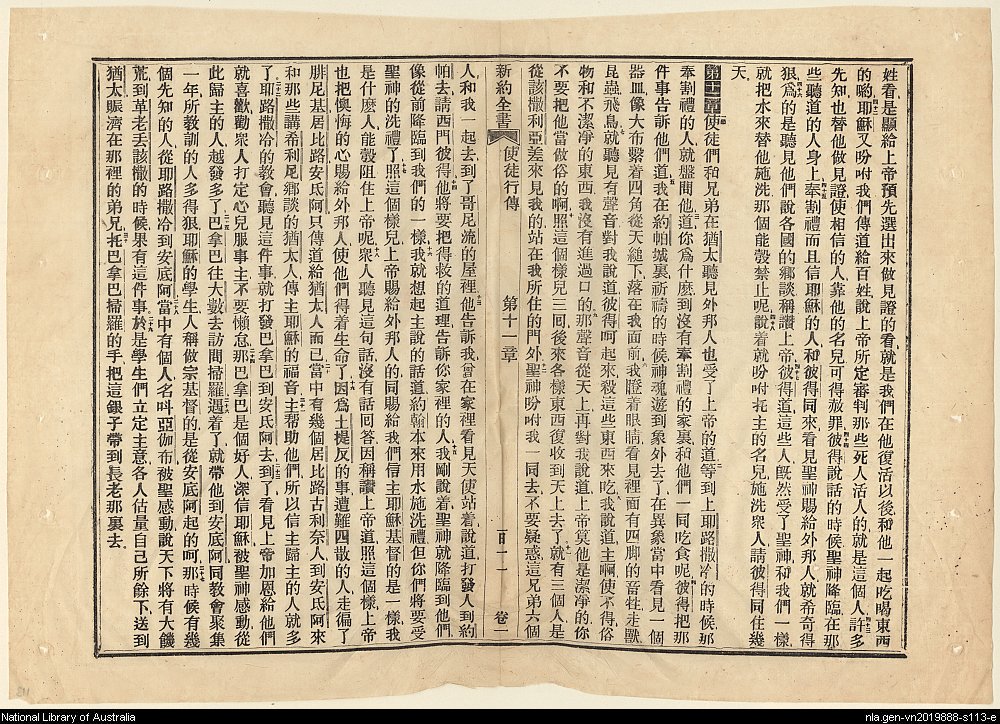 姓看是顯給上帝預先選出來做見證的看就是我們在他復活以後和他一起吃喝東西
的喲耶穌又吩咐我們傳道給百姓說上帝所定審判那些死人活人的就是這個人許多
先知也替他做見證使相信的人靠他的名兒可得赦罪彼得說話的時候聖神降臨在那
些聽道的人身上奉割禮而且信耶穌的人和彼得同來看見聖神賜給外邦人就希奇得
狠爲的是聽見他們說各國的鄉談稱讚上帝彼得道這些人既然受了聖神和我們一樣
就把水來替他施洗那個能彀禁止呢說着就吩咐托主的名兒施洗衆人請彼得同住幾
天
第十一章使徒們和兄弟在猶太聽見外邦人也受了上帝的道等到上耶路撒冷的時候那
奉割禮的人就盤間他道你爲什麼到沒有奉割禮的家裏和他們一同吃食呢彼得把那
件事告訴他們道我在約帕城裏祈禱的時候神魂遊到象外去了在異象當中看見一個
器皿像大布繫着四角從天縋下落在我面前我瞪着眼睛看見裡面有四脚的畜牲走獸
昆蟲飛鳥就聽見有聲音對我說道彼得呵起來殺這些東西來吃我說道主啊使不得俗
物和不潔淨的東西我沒有進過口的那聲音從天上再對我說道上帝莫他是潔淨的你
不要把他當做俗的啊照這個樣兒三回後來各樣東西復收到天上去了就有三個人是
從該撒利亞差來見我的站在我所住的門外聖神吩咐我一同去不要疑惑這兄弟六個
新約全書
使徒行傳
第十一章
百一一
卷一
人和我一起去到了哥尼流的屋裡他告訴我曾在家裡看見天使站着說道打發人到約
帕去請西門彼得他將要把得救的道理告訴你家裡的人我剛說着聖神就降臨到他們
像從前降臨到我們的一樣我就想起主說的話道約翰本來用水施洗禮但你們將要受
聖神的洗禮了照這個樣兒上帝賜給外邦人的同賜給我們信主耶穌基督的是一樣我
是什麼人能彀阻住上帝呢衆人聽見這句話沒有話回答因稱讚上帝道照這個樣上帝
也把懊悔的心賜給外邦人使他們得着生命了因爲土提反的事遭難四散的人走徧了
腓尼基居比路安氐阿只傳道給猶太人而已當中有幾個居比路古利奈人到安氐阿來
和那些講希利尼鄉談的猶太人傳主耶穌的福音主帮助他們所以信主歸主的人就多
了耶路撒冷的教會聽見這件事就打發巴拿巴到安氐阿去到了看見上帝加恩給他們
就喜歡勸衆人打定心兒服事主不要懶怠那巴拿巴是個好人深信耶穌被聖神感動從
此歸主的人越發多了巴拿巴往大數去訪間掃羅遇着了就帶他到安底阿同教會聚集
一年所教訓的人多得狠耶穌的學生人稱做宗基督的是從安底阿起的呵那時候有幾
個先知的人從耶路撒冷到安底阿當中有個人名呌亞伽布被聖感動說天下將有大饑
荒到革老丟該撒的時候果有這件事於是學生們立定主意各人估量自己所餘下送到
猶太賑濟在那裡的弟兄托巴拿巴掃羅的手把這銀子帶到長老那裏去
National Library of Australia
nla.gen-vn2019888-s113-e